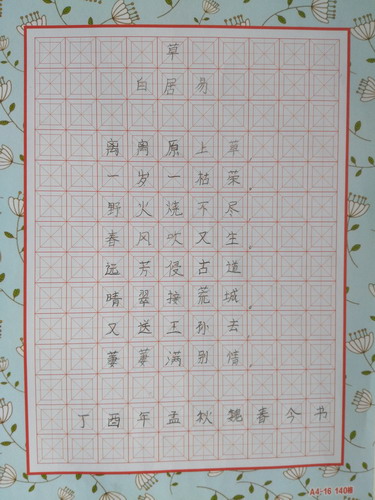 草
白居易
离离原上草
一岁一枯荣.
野火烧不尽
春风吹又生.
远芳侵古道
晴翠接荒城.
又送王孙去
萋萋满别情.
丁酉年孟秋魏春今书
A4-16 140格